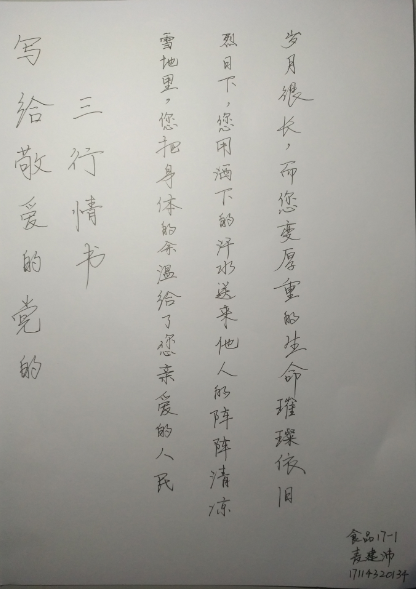 写给敬爱的党的
三行情书
雪地里，您把身体的余温给了您亲爱的人民
烈日下，您用洒下的汗水送来他人的阵阵清凉
岁月很长，而您变厚重的生命璀璨依旧
食品17-1
麦建沛
17114320134